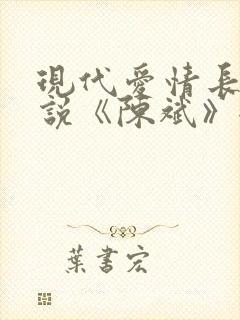 現代愛情長
說《陳斌》
葉書宏